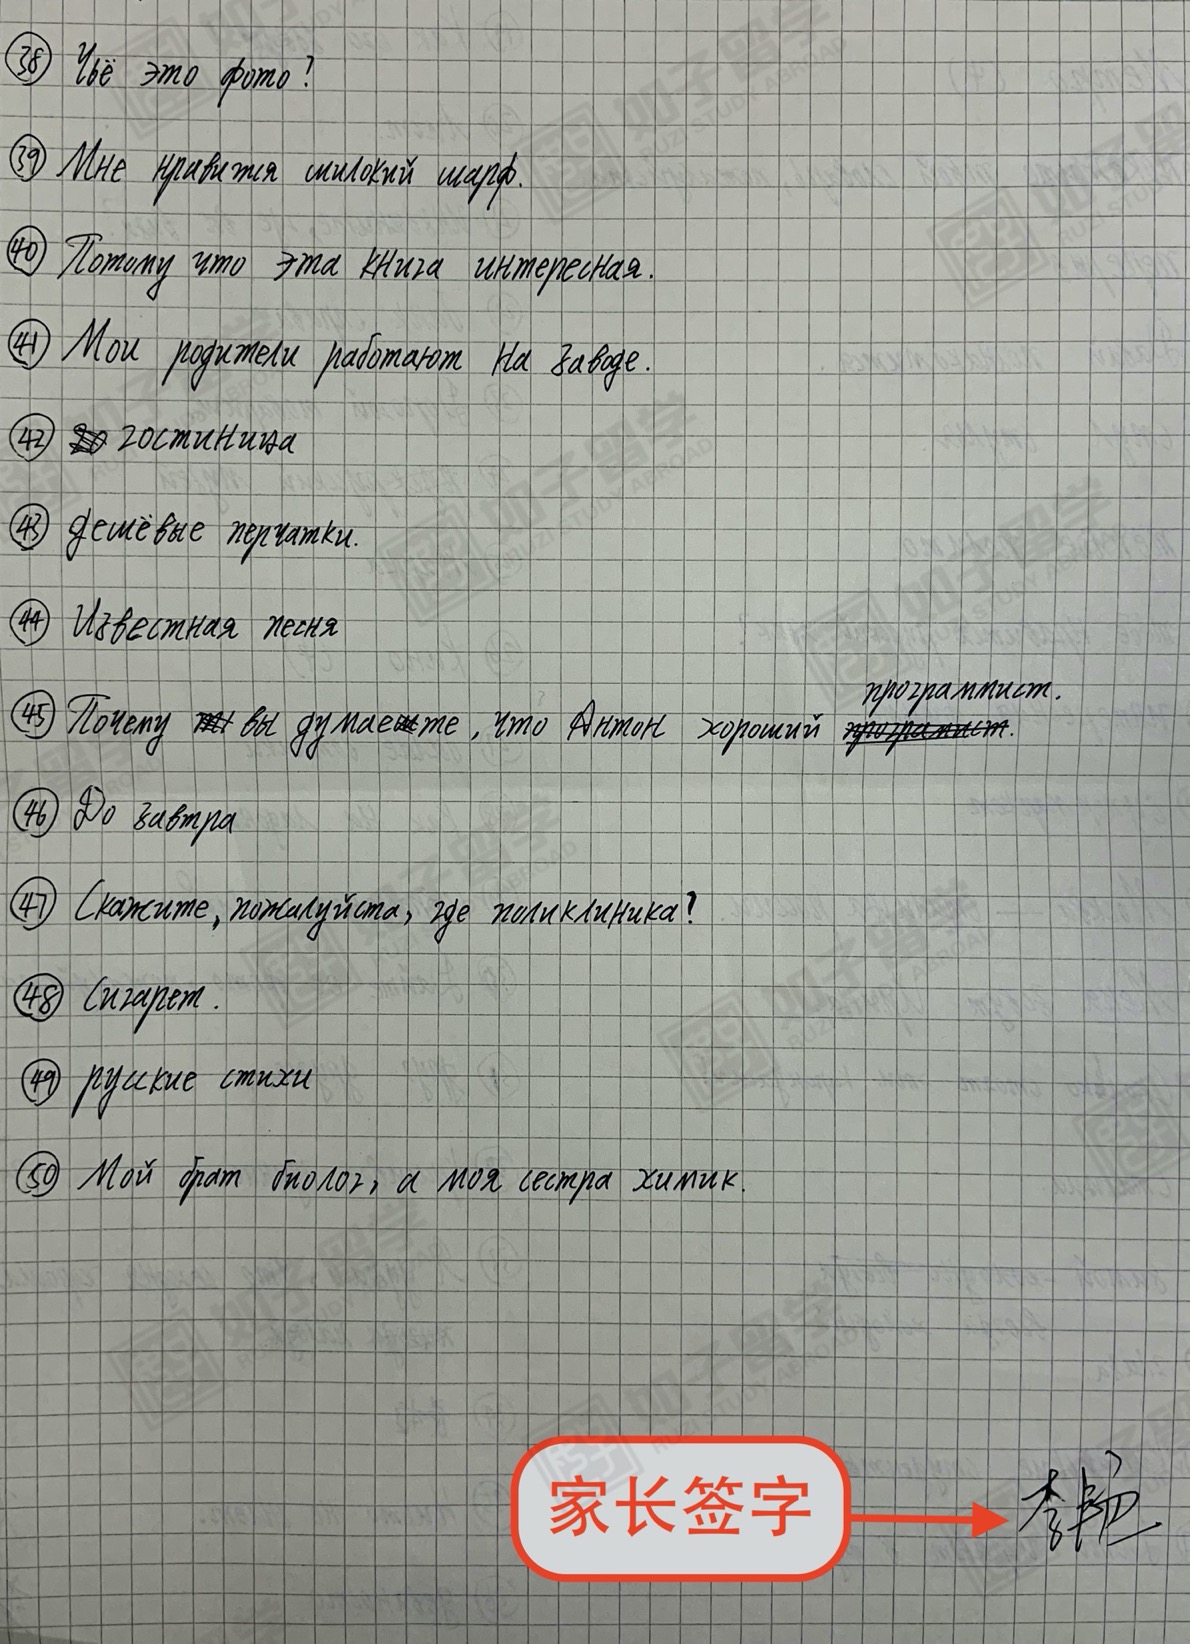 38 Чьё это фото?
39 Мне нравится милокий шарф.
40 Потому что эта книга интересная.
41 Мои родители работают на заводе.
42 гостиница
43 дешёвые перчатки.
44 Известная песня
программист.
45 Почему вы думаете, что Антон хороший
46 До завтра
47 Скажите, пожалуйста, где поликлиника?
48 Сигарет.
49 русские стихи
50 Мой брат биолог, а моя сестра химик.
家长签字
如子留学
RUZI STUDY ABROAD